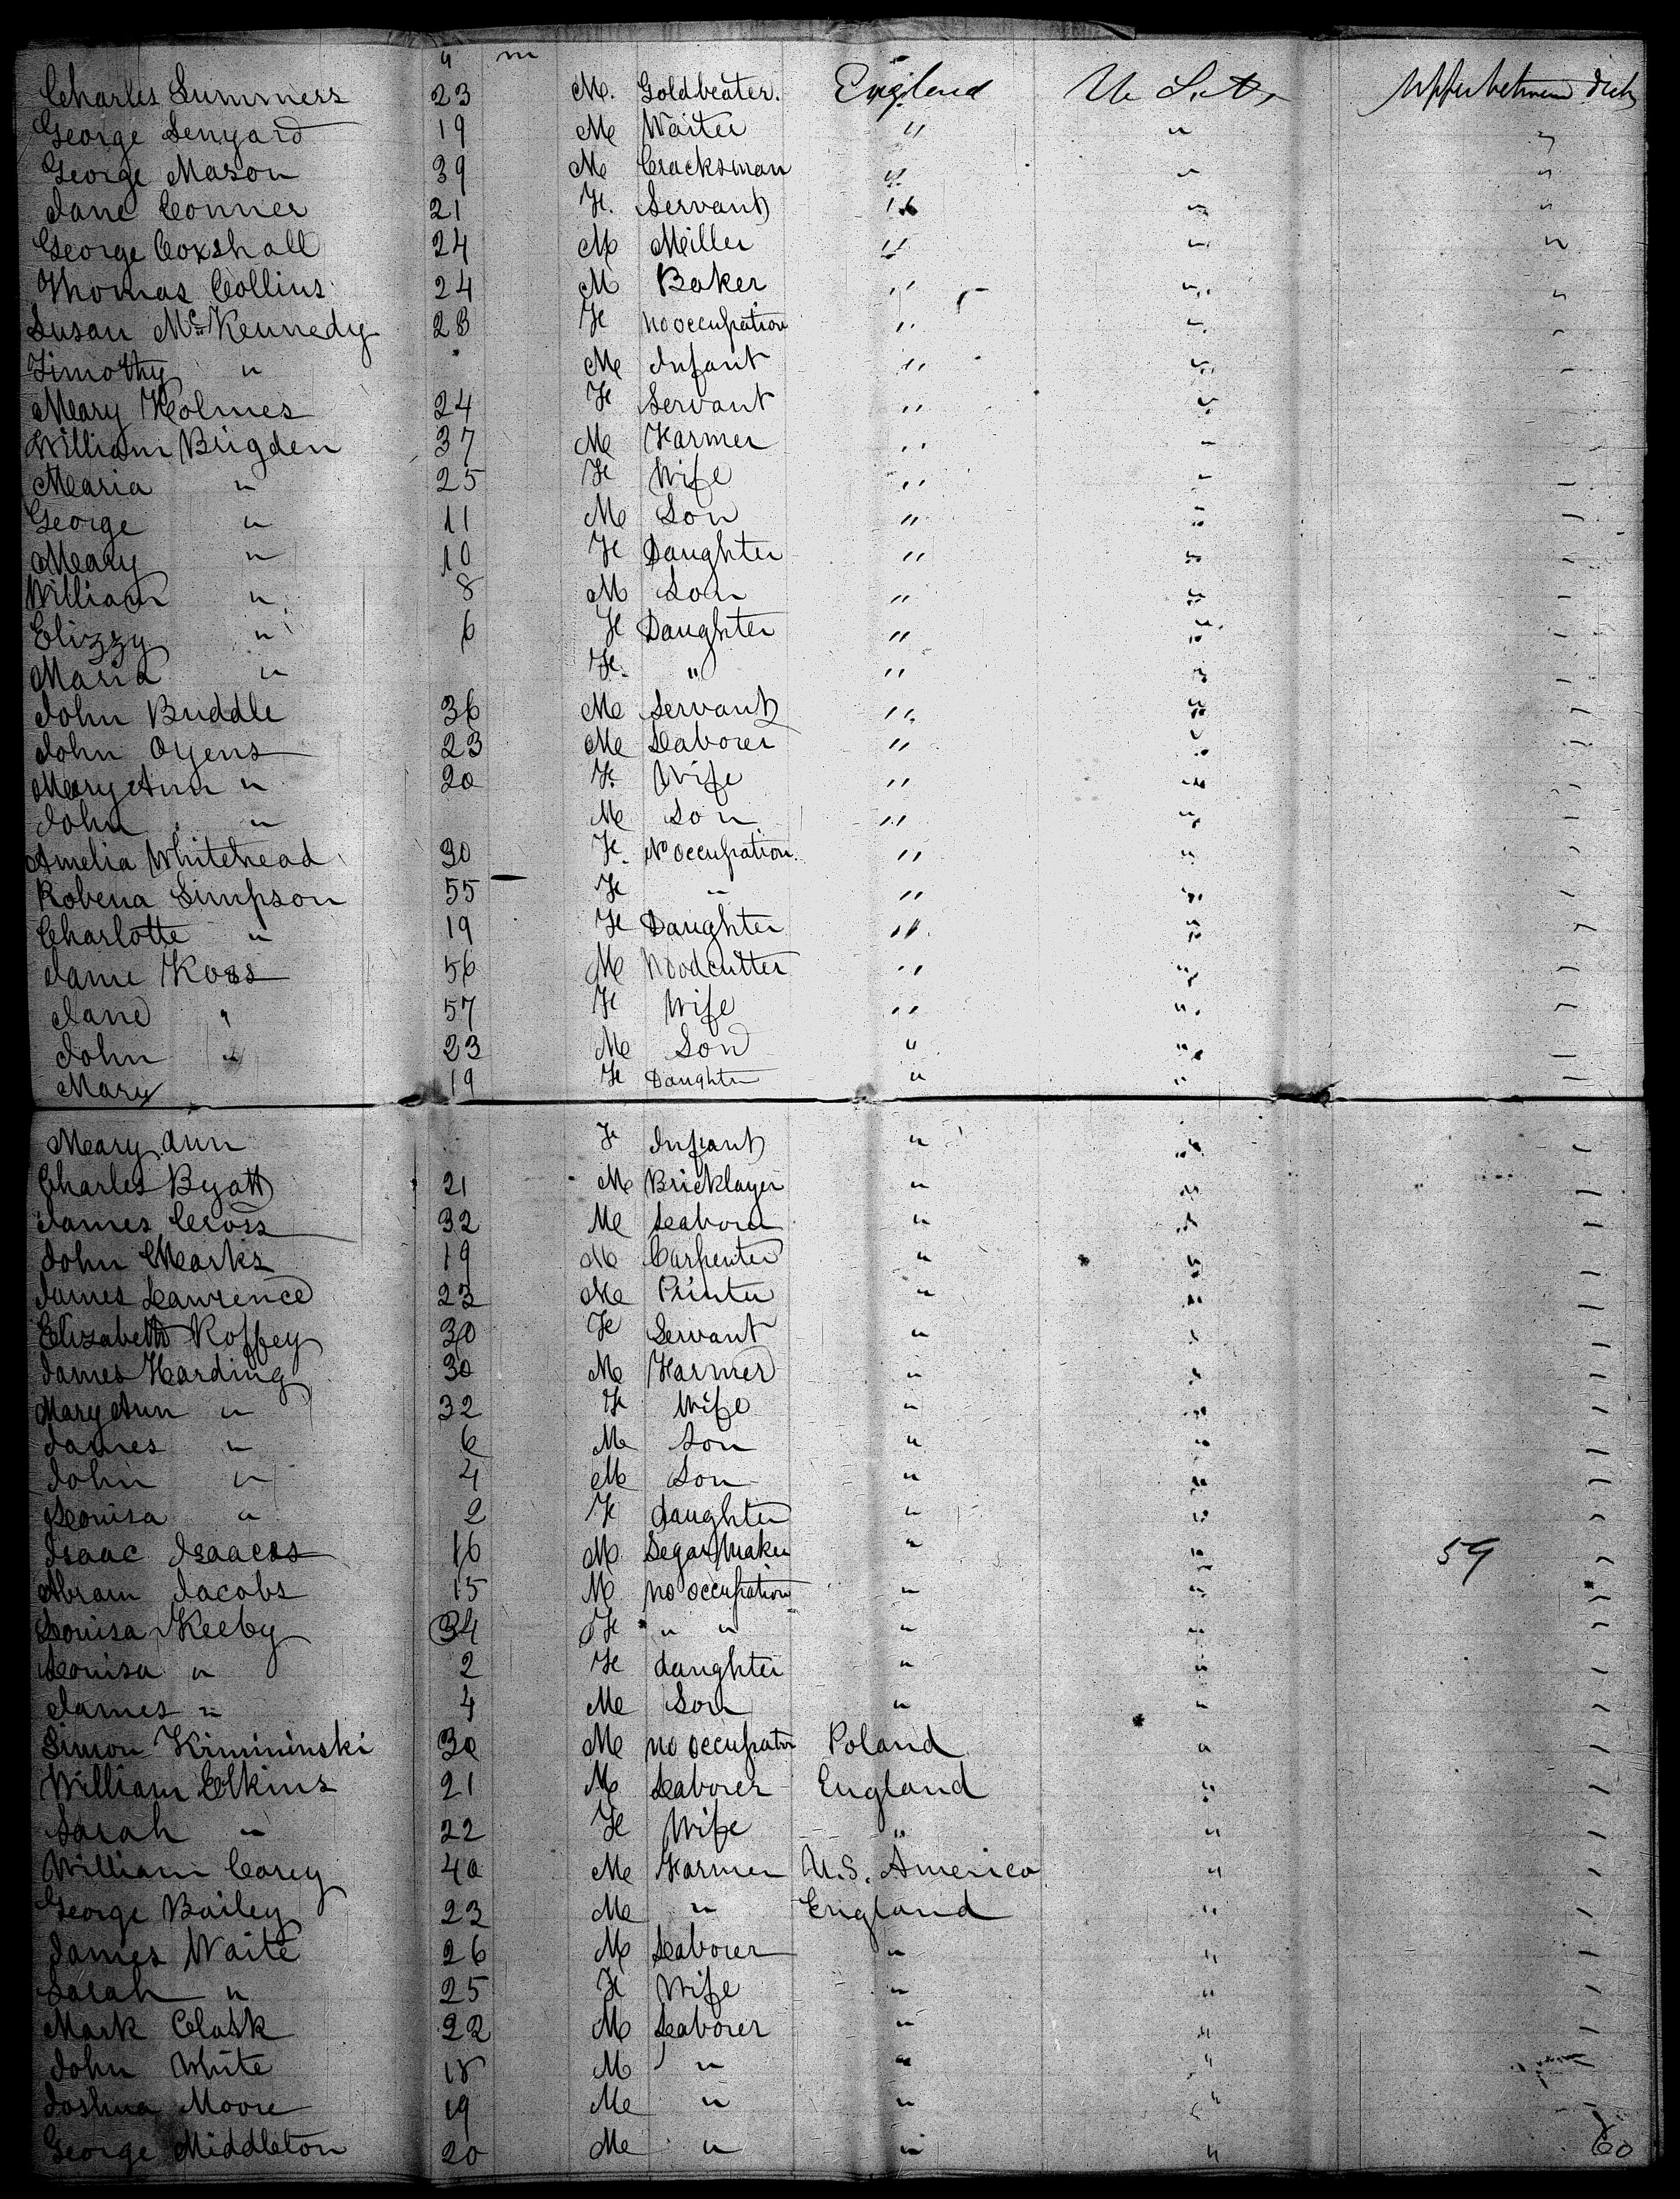 y m
Charles Summers 23 M. Goldbeater. England U. Sts Upper between deck
George Senyard 19 M Waiter " " "
George Mason 39 M Cracksman " " "
Jane Conner 21 F. Servant " " "
George Coxshall 24 M Miller " " "
Thomas Collins 24 M Baker " " "
Susan McKennedy 28 F no occupation " " "
Timothy " M Infant " " "
Mary Holmes 24 F Servant " " "
William Brigden 37 M Farmer " " "
Maria " 25 F Wife " " "
George " 11 M Son " " "
Mary " 10 F Daughter " " "
William " 8 M Son " " "
Elizzy " 6 F Daughter " " "
Maria " F. " " " "
John Buddle 36 M Servant " " "
John Oyens 23 M Laborer " " "
Mary Ann " 20 F. Wife " " "
John " M Son " " "
Amelia Whitehead 30 F. No occupation " " "
Robena Simpson 55 F " " " "
Charlotte " 19 F Daughter " " "
Jame Ross 56 M Woodcutter " " "
Jane " 57 F Wife " " "
John " 23 M Son " " "
Mary 19 F Daughter " " "
Mary Ann F Infant " " "
Charles Byatt 21 M Bricklayer " " "
James Cross 32 M Laborer " " "
John Marks 19 M Carpenter " " "
James Lawrence 23 M Printer " " "
Elizabeth Roffey 30 F Servant " " "
James Harding 30 M Farmer " " "
Mary Ann " 32 F Wife " " "
James " 6 M Son " " "
John " 4 M Son " " "
Louisa " 2 F daughter " " "
Isaac Isaacss 16 M Segar Maker " " 59 "
Abram Jacobs 15 M no occupation " " "
Louisa Keeby 34 F " " " " "
Louisa " 2 F daughter " " "
James " 4 M Son " " "
Simon Krimininski 30 M no occupation Poland " "
William Elkins 21 M Laborer England " "
Sarah " 22 F Wife " " "
William Carey 40 M Farmer U.S. America " "
George Bailey 23 M " England " "
James Waite 26 M Laborer " " "
Sarah " 25 F Wife " " "
Mark Clark 22 M Laborer " " "
John White 18 M " " " "
Joshua Moore 19 M " " " "
George Middleton 20 M " " " 60